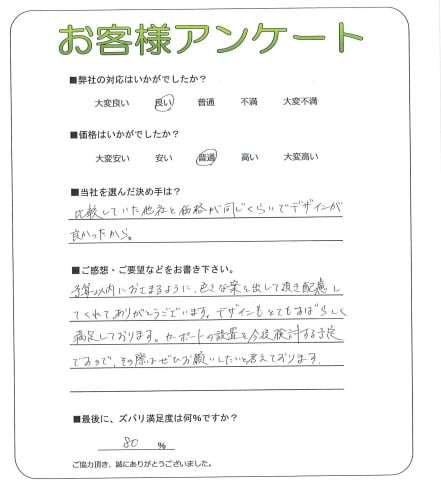 お客様アンケート
■弊社の対応はいかがでしたか？
大変良い 良い 普通 不満 大変不満
■価格はいかがでしたか？
大変安い 安い 普通 高い 大変高い
■当社を選んだ決め手は？
比較していた他社と価格が同じくらいでデザインが
良かったから。
■ご感想・ご要望などをお書き下さい。
予算以内におさまるように、色々な案を出して頂き配慮し
てくれてありがとうございます。デザインもとてもすばらしく
満足しております。カーポートの設置を今後検討する予定
ですので、その際はぜひお願いしたいと考えております。
■最後に、ズバリ満足度は何%ですか？
80 %
ご協力頂き、誠にありがとうございました。